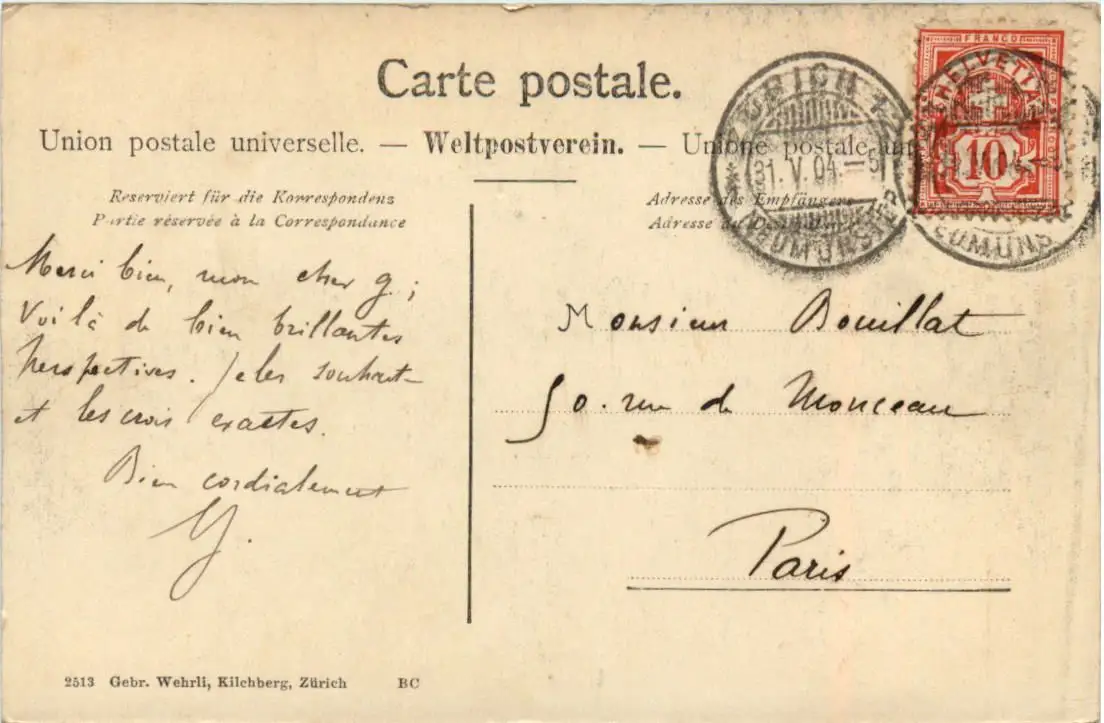 Carte postale.
Union postale universelle. — Weltpostverein. — Unione postale un
Reserviert für die Korrespondenz
Partie réservée à la Correspondance
Adresse des Empfängers
Adresse du
ZÜRICH
31.V.04.—5
NEUMÜNSTER
FRANCO
HELVETIA
10
EUMÜNS
Merci bien, mon cher G;
Voilà de bien brillantes
perspectives. Je les souhait
et les crois exactes.
Bien cordialement
G.
Monsieur Bouillat
50. rue de Monceau
Paris
2513 Gebr. Wehrli, Kilchberg, Zürich BC